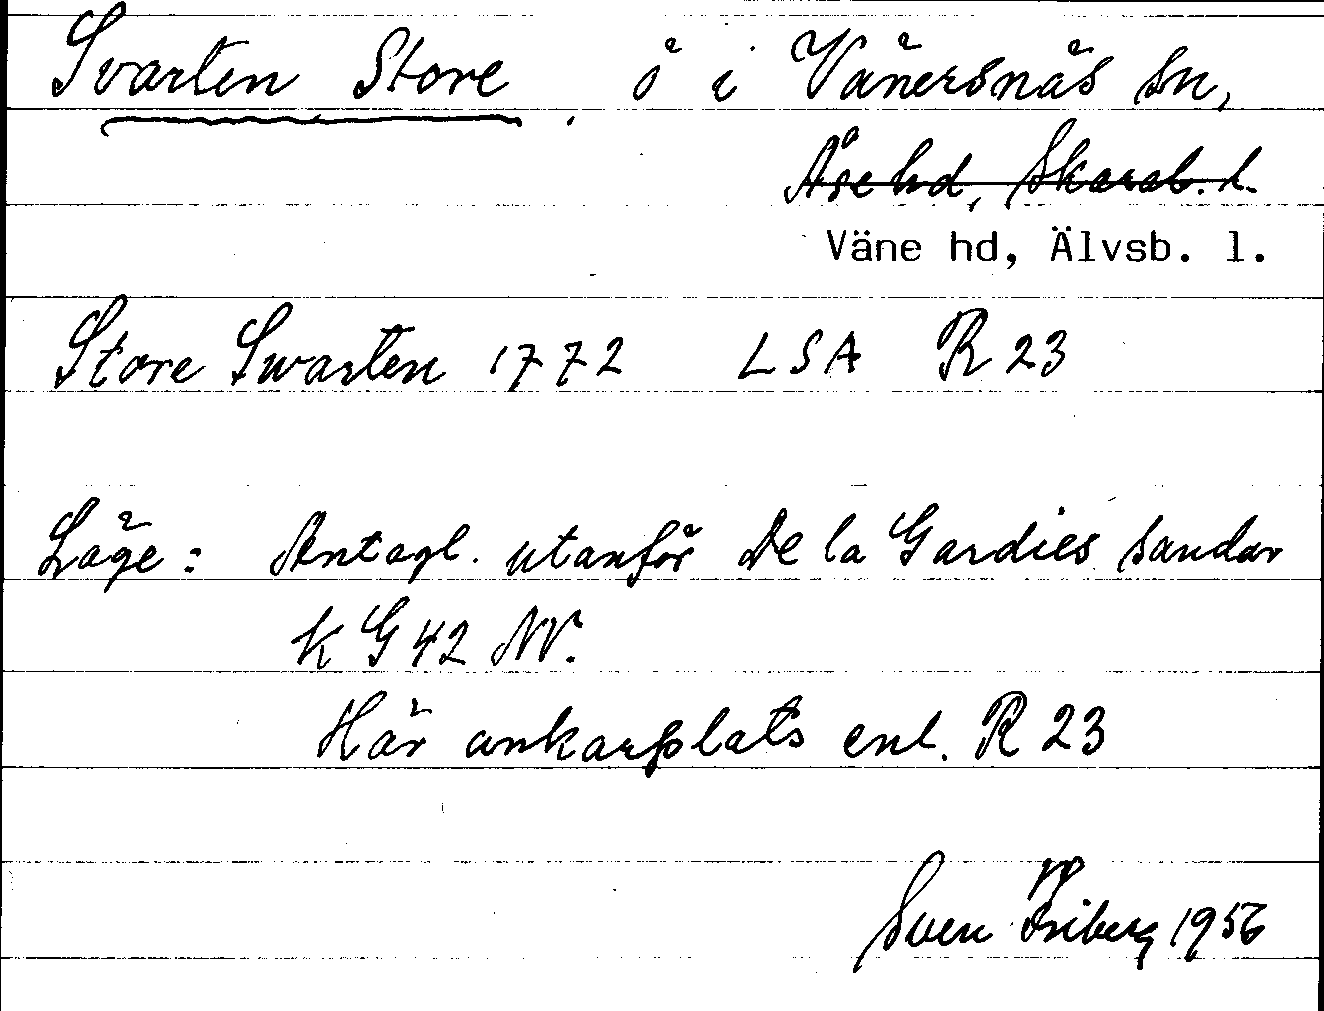 Svarten Store, ö i Vänersnäs sn,
Åse hd, Skarab. l.
Väne hd, Älvsb. l.
Store Swarten 1772 LSA R 23
Läge: Antagl. utanför De la Gardies sandar
k G 42 NV.
Här ankarplats enl. R 23
Sven Friberg 1956